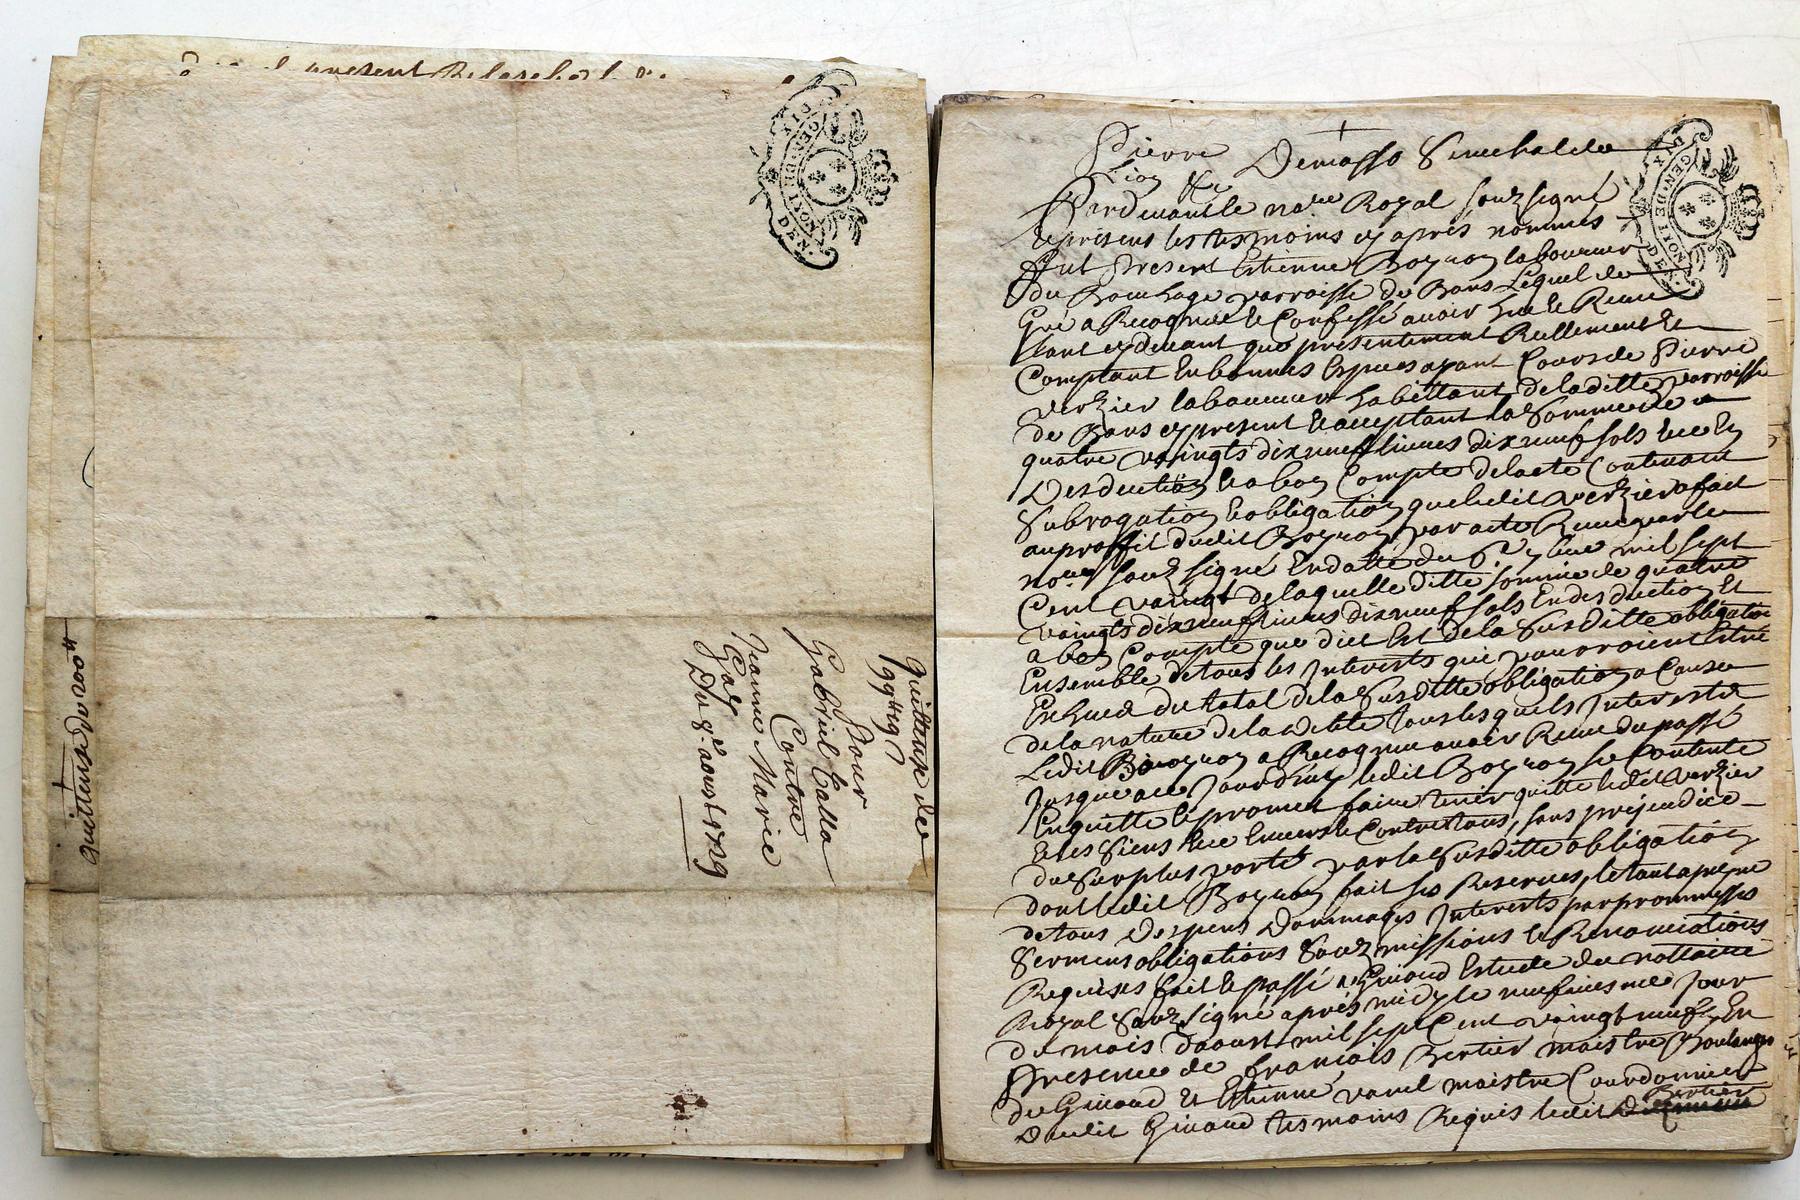 present
GEN. DE LYON
DIX DEN.
quittense de 200 ₶
quittense de
199 ₶ 19 s
Pour
Gabriel Calla
Contre
Jeanne Marie
Du 8e aoust 1729
Pierre Demasso Senechal de
Lion &c
Pardevant le nore Royal souzsigné
Et presens les tesmoins cy après nommés
fut present Etienne Boyron laboureur
du parroisse de Bans Lequel de
Gré a Recognu et Confessé avoir heu et Receu
tant cydevant que presentement Reellement Et
Comptant En bonnes Espices ayant Cours de Pierre
Verzier laboureur habittant de la ditte parroisse
de Bans cy present Et acceptant la Somme de
quatre vaingts dix neuf livres dix neuf sols Et ce En
Desduction Et a bon Compte de lacte Contenant
Subrogation Et obligation que ledit Verzier a fait
au proffit dudit Boyron par acte Receu par le
nore souz signé En datte du mil sept
Cent vaingt de laquelle ditte somme de quatre
vaingts dix neuf livres dix neuf sols En desduction Et
a bon Compte que dict Est de la Susditte obligation
Ensemble de tous les Interests qui pourroient Estre
du total de la Susditte obligation a Cause
de la nature de la debte tous lesquels Interests
Ledit Boyron a Recognu avoir Receu du passé
Jusques a ce Jourdhuy ledit Boyron se Contente
Enquitte Et promet faire tenir quitte ledit Verzier
Et les Siens Envers Et Contre tous, sans prejeudice
du Surplus porté par la Susditte obligation
dont ledit Boyron fait ses Reserves, Et tant a peyne
de tous Despens Dommages Interests par promesses
Sermens obligations Souzmissions Et Renonciations
Requises fait Et passé a Givord Estude du nottaire
Royal Souzsigné après midy le neufiesme Jour
du mois daoust mil sept Cent vaingt neuf, En
Presence de françois Bertier maistre Boulanger
de Givord Et Etienne maistre Courdonnier
Dudit Givord tesmoins Requis ledit Bertier
GEN. DE LYON
DIX DEN.